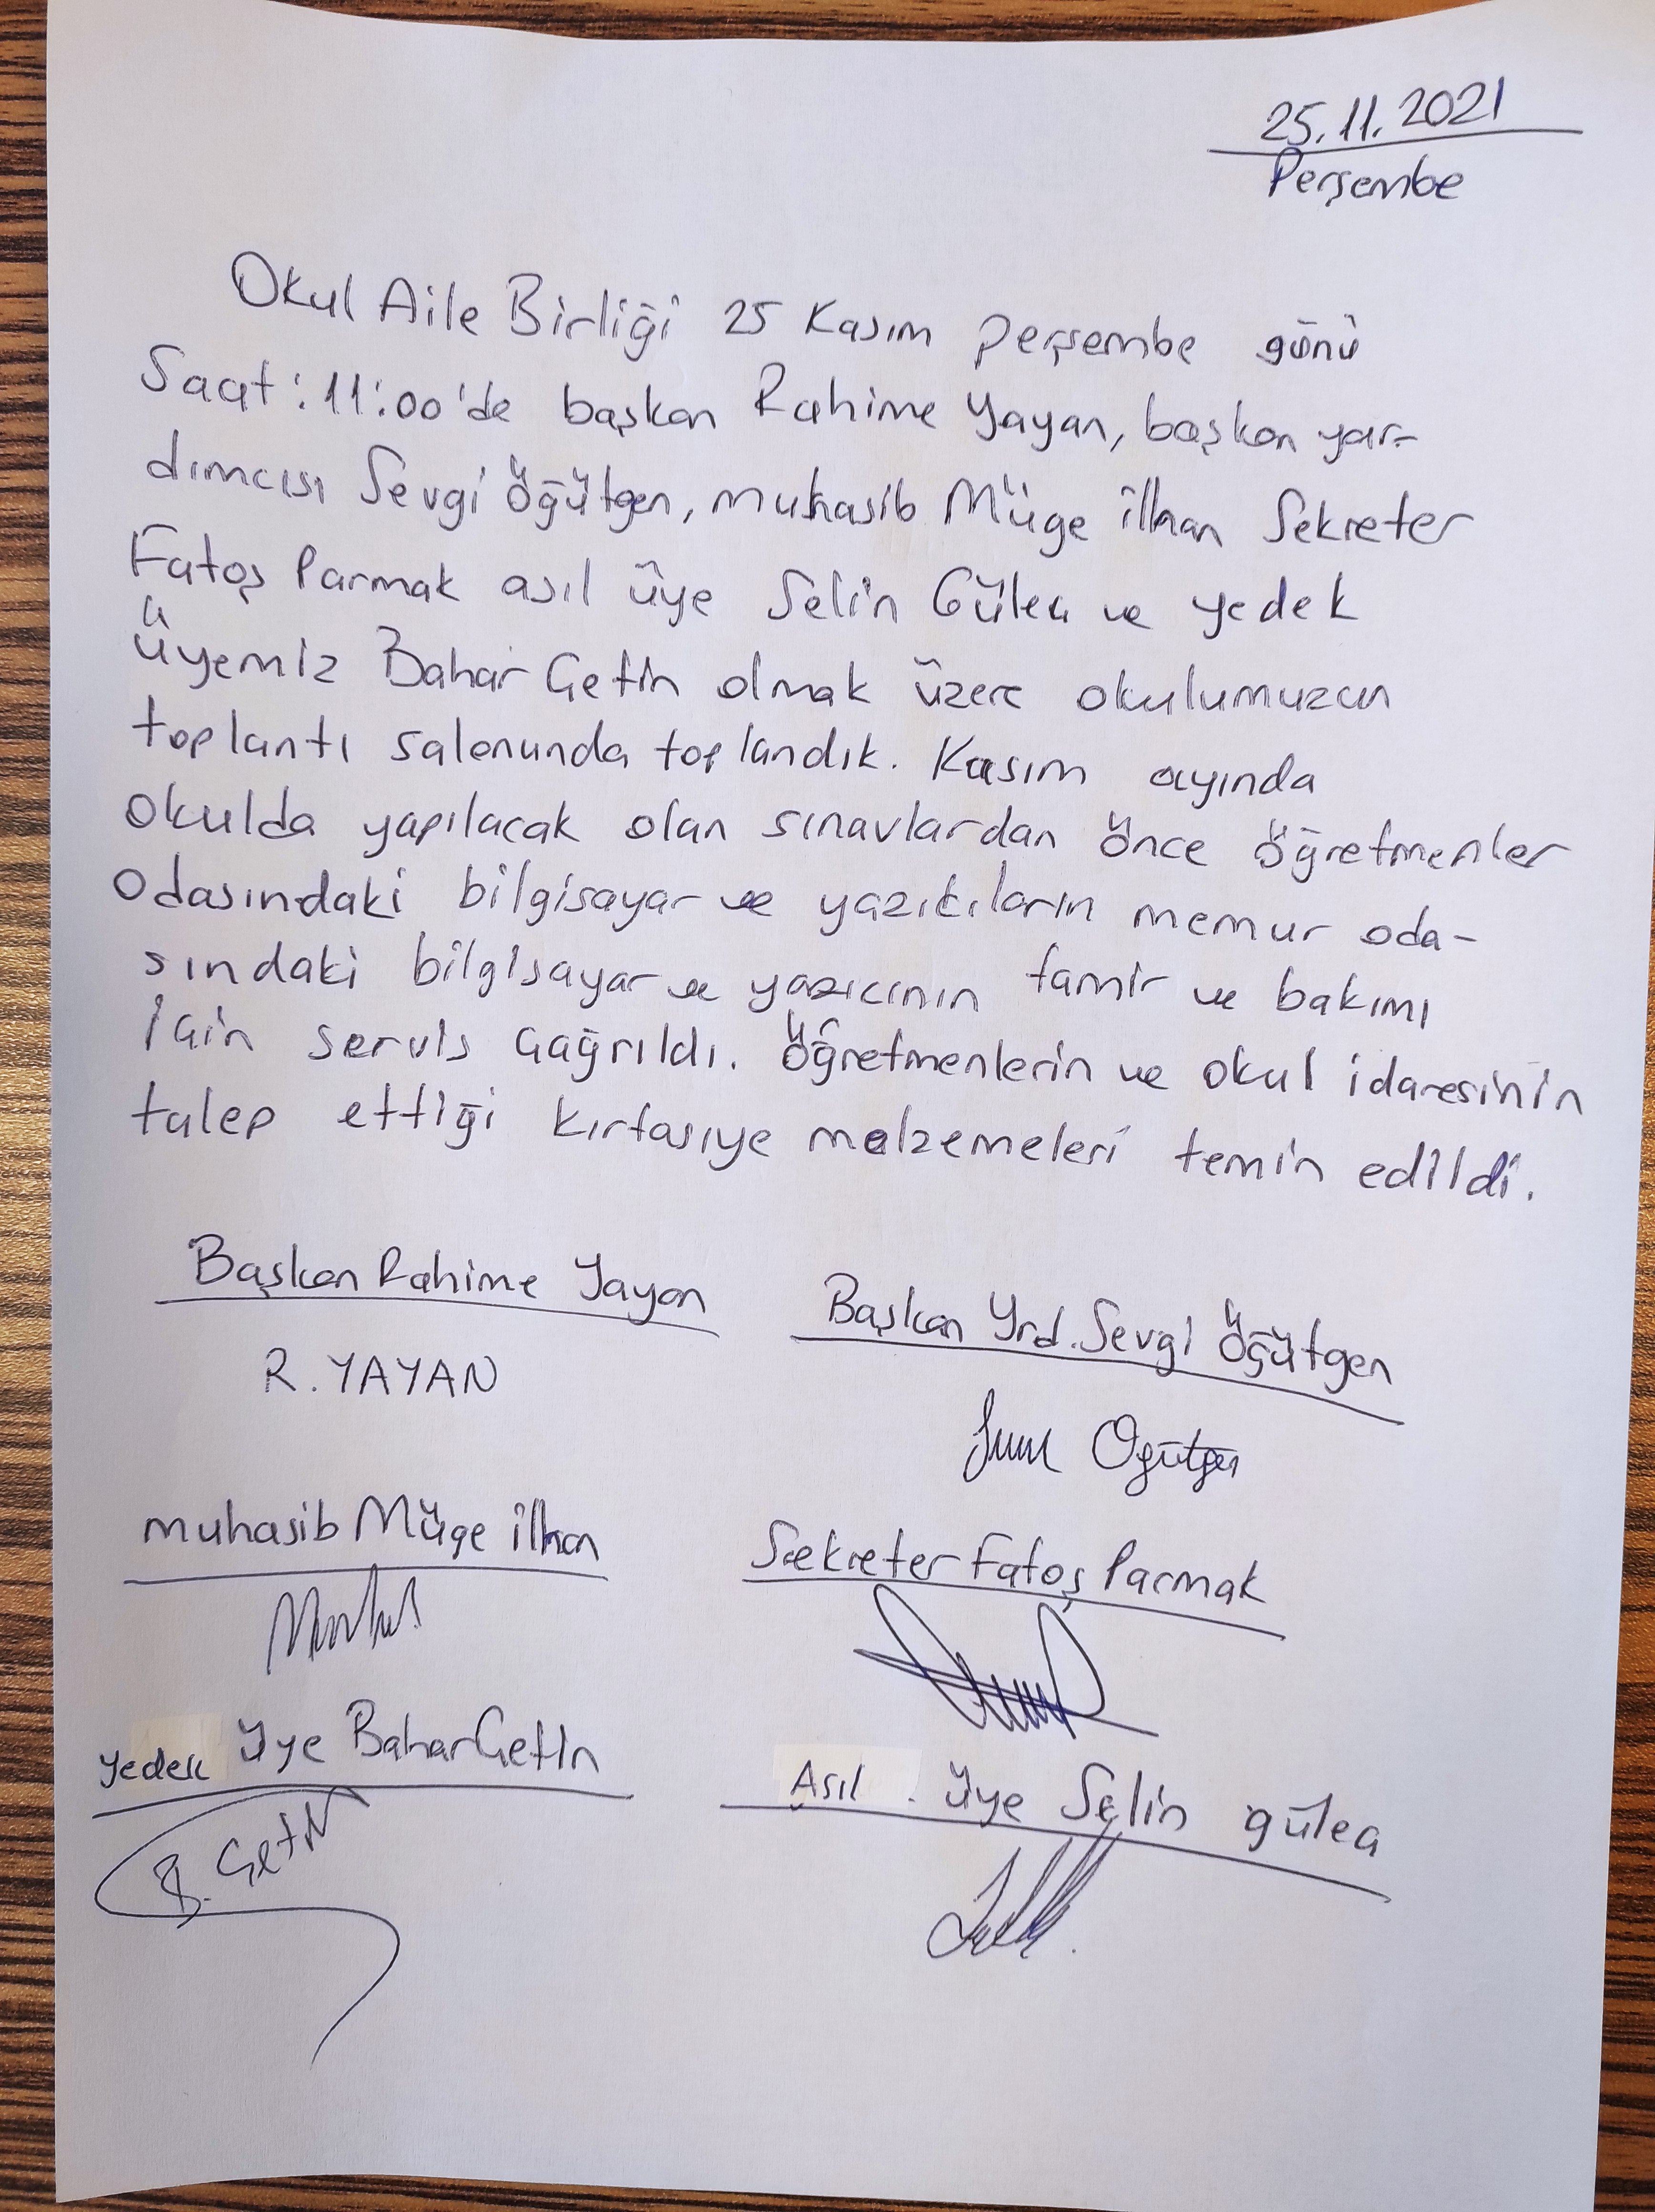 25.11.2021
Perşembe
Okul Aile Birliği 25 Kasım Perşembe günü
Saat:11:00'de başkan Rahime Yayan, başkan yar-
dımcısı Sevgi Öğütgen, muhasib Müge ilhan Sekreter
Fatoş Parmak asıl üye Selin Güleç ve yedek
üyemiz Bahar Çetin olmak üzere okulumuzun
toplantı salonunda toplandık. Kasım ayında
okulda yapılacak olan sınavlardan önce öğretmenler
odasındaki bilgisayar ve yazıcıların memur oda-
sındaki bilgisayar ve yazıcının tamir ve bakımı
için servis çağrıldı. Öğretmenlerin ve okul idaresinin
talep ettiği kırtasiye malzemeleri temin edildi.
Başkan Rahime Yayan
Başkan Yrd. Sevgi Öğütgen
R. YAYAN
Öğütgen
muhasib Müge ilhan
Sekreter Fatoş Parmak
Yedek Üye Bahar Çetin
Asıl üye Selin güleç
B. Çetin